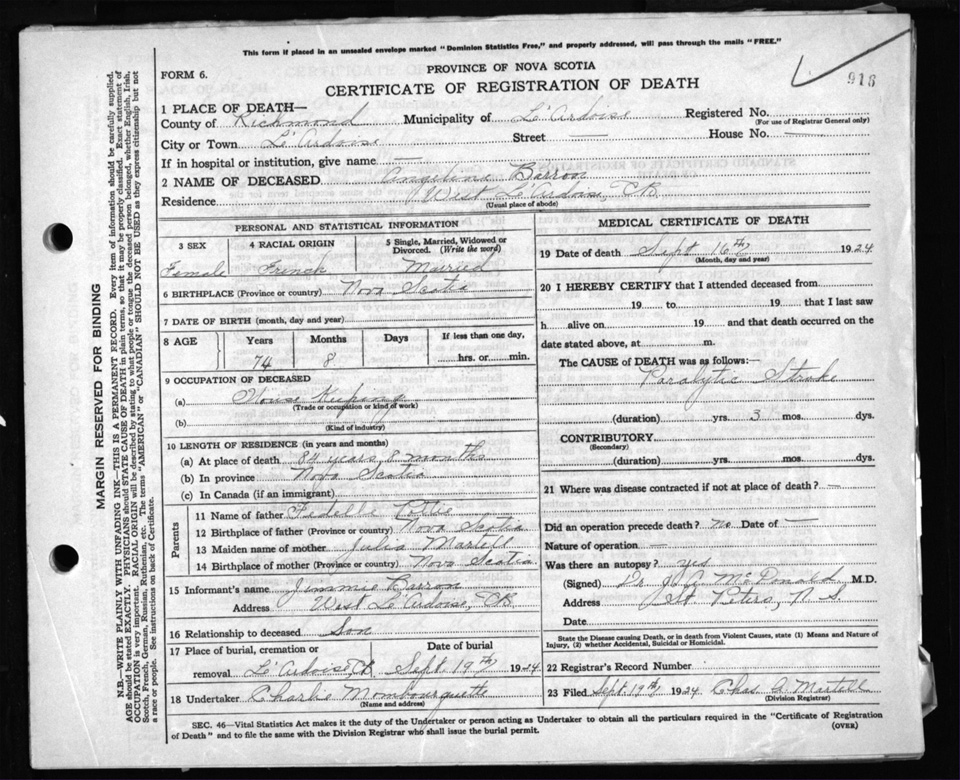 This form if placed in an unsealed envelope marked "Dominion Statistics Free," and properly addressed, will pass through the mails "FREE."
FORM 6.
PROVINCE OF NOVA SCOTIA
918
CERTIFICATE OF REGISTRATION OF DEATH
1 PLACE OF DEATH—
County of Richmond Municipality of L'Ardoise Registered No.
(For use of Registrar General only)
City or Town L'Ardoise Street — House No. —
If in hospital or institution, give name —
2 NAME OF DECEASED Angeline Barron
Residence West L'Ardoise, CB
(Usual place of abode)
PERSONAL AND STATISTICAL INFORMATION
3 SEX 4 RACIAL ORIGIN 5 Single, Married, Widowed or Divorced. (Write the word)
Female French Married
6 BIRTHPLACE (Province or country) Nova Scotia
7 DATE OF BIRTH (month, day and year)
8 AGE Years Months Days If less than one day,
74 8 hrs. or min.
9 OCCUPATION OF DECEASED
(a) House Keeping
(Trade or occupation or kind of work)
(b)
(Kind of industry)
10 LENGTH OF RESIDENCE (in years and months)
(a) At place of death 84 years 8 months
(b) In province Nova Scotia
(c) In Canada (if an immigrant)
Parents
11 Name of father Fidelle
12 Birthplace of father (Province or country) Nova Scotia
13 Maiden name of mother Julia Martell
14 Birthplace of mother (Province or country) Nova Scotia
15 Informant's name Jimmie Barron
Address West L'Ardoise, CB
16 Relationship to deceased Son
17 Place of burial, cremation or removal Date of burial
L'Ardoise, CB Sept. 19th 1924
18 Undertaker Charlie Mombourquette
(Name and address)
MEDICAL CERTIFICATE OF DEATH
19 Date of death Sept 16th 1924
(Month, day and year)
20 I HEREBY CERTIFY that I attended deceased from
19 to 19 that I last saw
h alive on 19 and that death occurred on the
date stated above, at m.
The CAUSE of DEATH was as follows:—
Paralytic Stroke
(duration) yrs. 3 mos. dys.
CONTRIBUTORY
(Secondary)
(duration) yrs. mos. dys.
21 Where was disease contracted if not at place of death? —
Did an operation precede death? no Date of —
Nature of operation —
Was there an autopsy? yes
(Signed) Dr McDonald M.D.
Address St. Peters, N.S.
Date
State the Disease causing Death, or in death from Violent Causes, state (1) Means and Nature of
Injury, (2) whether Accidental, Suicidal or Homicidal.
22 Registrar's Record Number
23 Filed Sept. 19th 1924 Chas A Martell
(Division Registrar)
SEC. 46—Vital Statistics Act makes it the duty of the Undertaker or person acting as Undertaker to obtain all the particulars required in the "Certificate of Registration
of Death" and to file the same with the Division Registrar who shall issue the burial permit.
(OVER)
MARGIN RESERVED FOR BINDING
N.B.—WRITE PLAINLY WITH UNFADING INK—THIS IS A PERMANENT RECORD. Every item of information should be carefully supplied.
AGE should be stated EXACTLY. PHYSICIANS should STATE CAUSE OF DEATH in plain terms, so that it may be properly classified. Exact statement of
OCCUPATION is very important. RACIAL ORIGIN will be described by stating to what people or tongue the deceased person belonged, whether English, Irish,
Scotch, French, German, Russian, Ruthenian, etc. The terms "AMERICAN" or "CANADIAN" SHOULD NOT BE USED as they express citizenship but not
a race or people. See instructions on back of Certificate.